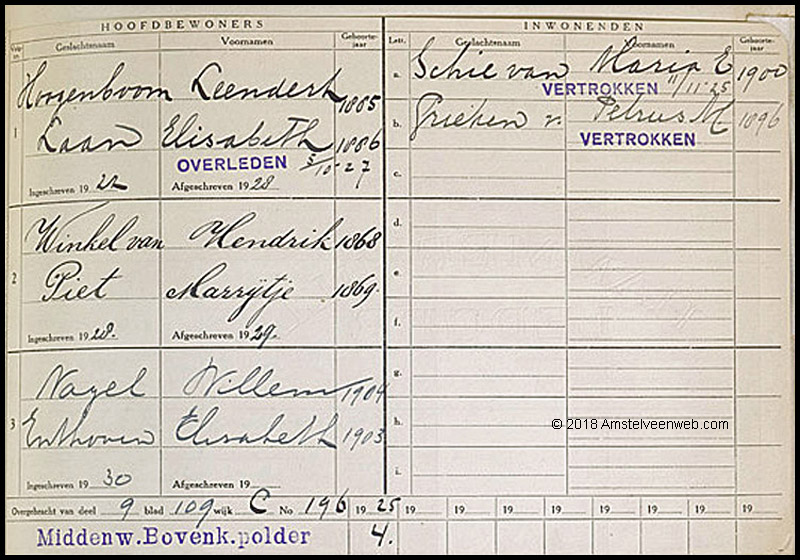 HOOFDBEWONERS
Volgn. Geslachtsnaam Voornamen Geboortejaar
1
Hoogenboom Leendert 1885
Laan Elisabeth 1886
OVERLEDEN 5/10-27
Ingeschreven 1922 Afgeschreven 1928
2
Winkel van Hendrik 1868
Piet Marrijtje 1869
Ingeschreven 1928. Afgeschreven 1929.
3
Nagel Willem 1904
Enthoven Elisabeth 1903
Ingeschreven 19 30 Afgeschreven 19
INWONENDEN
Lett. Geslachtsnaam Voornamen Geboortejaar
a. Schie van Maria E 1900
VERTROKKEN 11/11 '25
b. Grieken v. Petrus M 1896
VERTROKKEN
c.
d.
e.
f.
g.
h.
i.
© 2018 Amstelveenweb.com
Overgebracht van deel 9 blad 109 wijk C No 196 19 25 19 19 19 19 19 19 19
Middenw.Bovenk.polder 4.